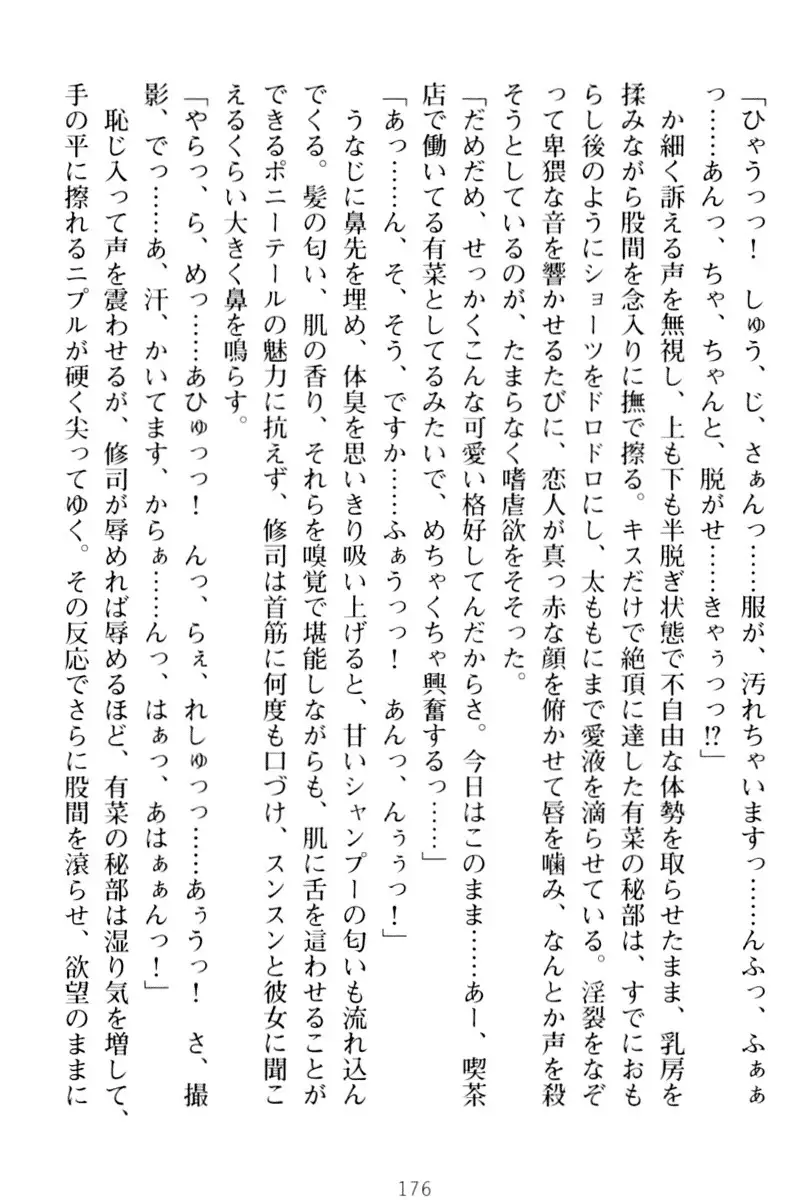 「ひゃうっっ！　しゅう、じ、さぁんっ……服が、汚れちゃいますっ……んふっ、ふぁぁ
っ……あんっ、ちゃ、ちゃんと、脱がせ……きゃぅっっ!?」
か細く訴える声を無視し、上も下も半脱ぎ状態で不自由な体勢を取らせたまま、乳房を
揉みながら股間を念入りに撫で擦る。キスだけで絶頂に達した有菜の秘部は、すでにおも
らし後のようにショーツをドロドロにし、太ももにまで愛液を滴らせている。淫裂をなぞ
って卑猥な音を響かせるたびに、恋人が真っ赤な顔を俯かせて唇を噛み、なんとか声を殺
そうとしているのが、たまらなく嗜虐欲をそそった。
「だめだめ、せっかくこんな可愛い格好してんだからさ。今日はこのまま……あー、喫茶
店で働いてる有菜としてるみたいで、めちゃくちゃ興奮するっ……」
「あっ……ん、そ、そう、ですか……ふぁうっっ！　あんっ、んぅぅっ！」
うなじに鼻先を埋め、体臭を思いきり吸い上げると、甘いシャンプーの匂いも流れ込ん
でくる。髪の匂い、肌の香り、それらを嗅覚で堪能しながらも、肌に舌を這わせることが
できるポニーテールの魅力に抗えず、修司は首筋に何度も口づけ、スンスンと彼女に聞こ
えるくらい大きく鼻を鳴らす。
「やらっ、ら、めっ……あひゅっっ！　んっ、らぇ、れしゅっっ……あぅうっ！　さ、撮
影、でっ……あ、汗、かいてます、からぁ……んっ、はぁっ、あはぁぁんっ！」
恥じ入って声を震わせるが、修司が辱めれば辱めるほど、有菜の秘部は湿り気を増して、
手の平に擦れるニプルが硬く尖ってゆく。その反応でさらに股間を滾らせ、欲望のままに
176